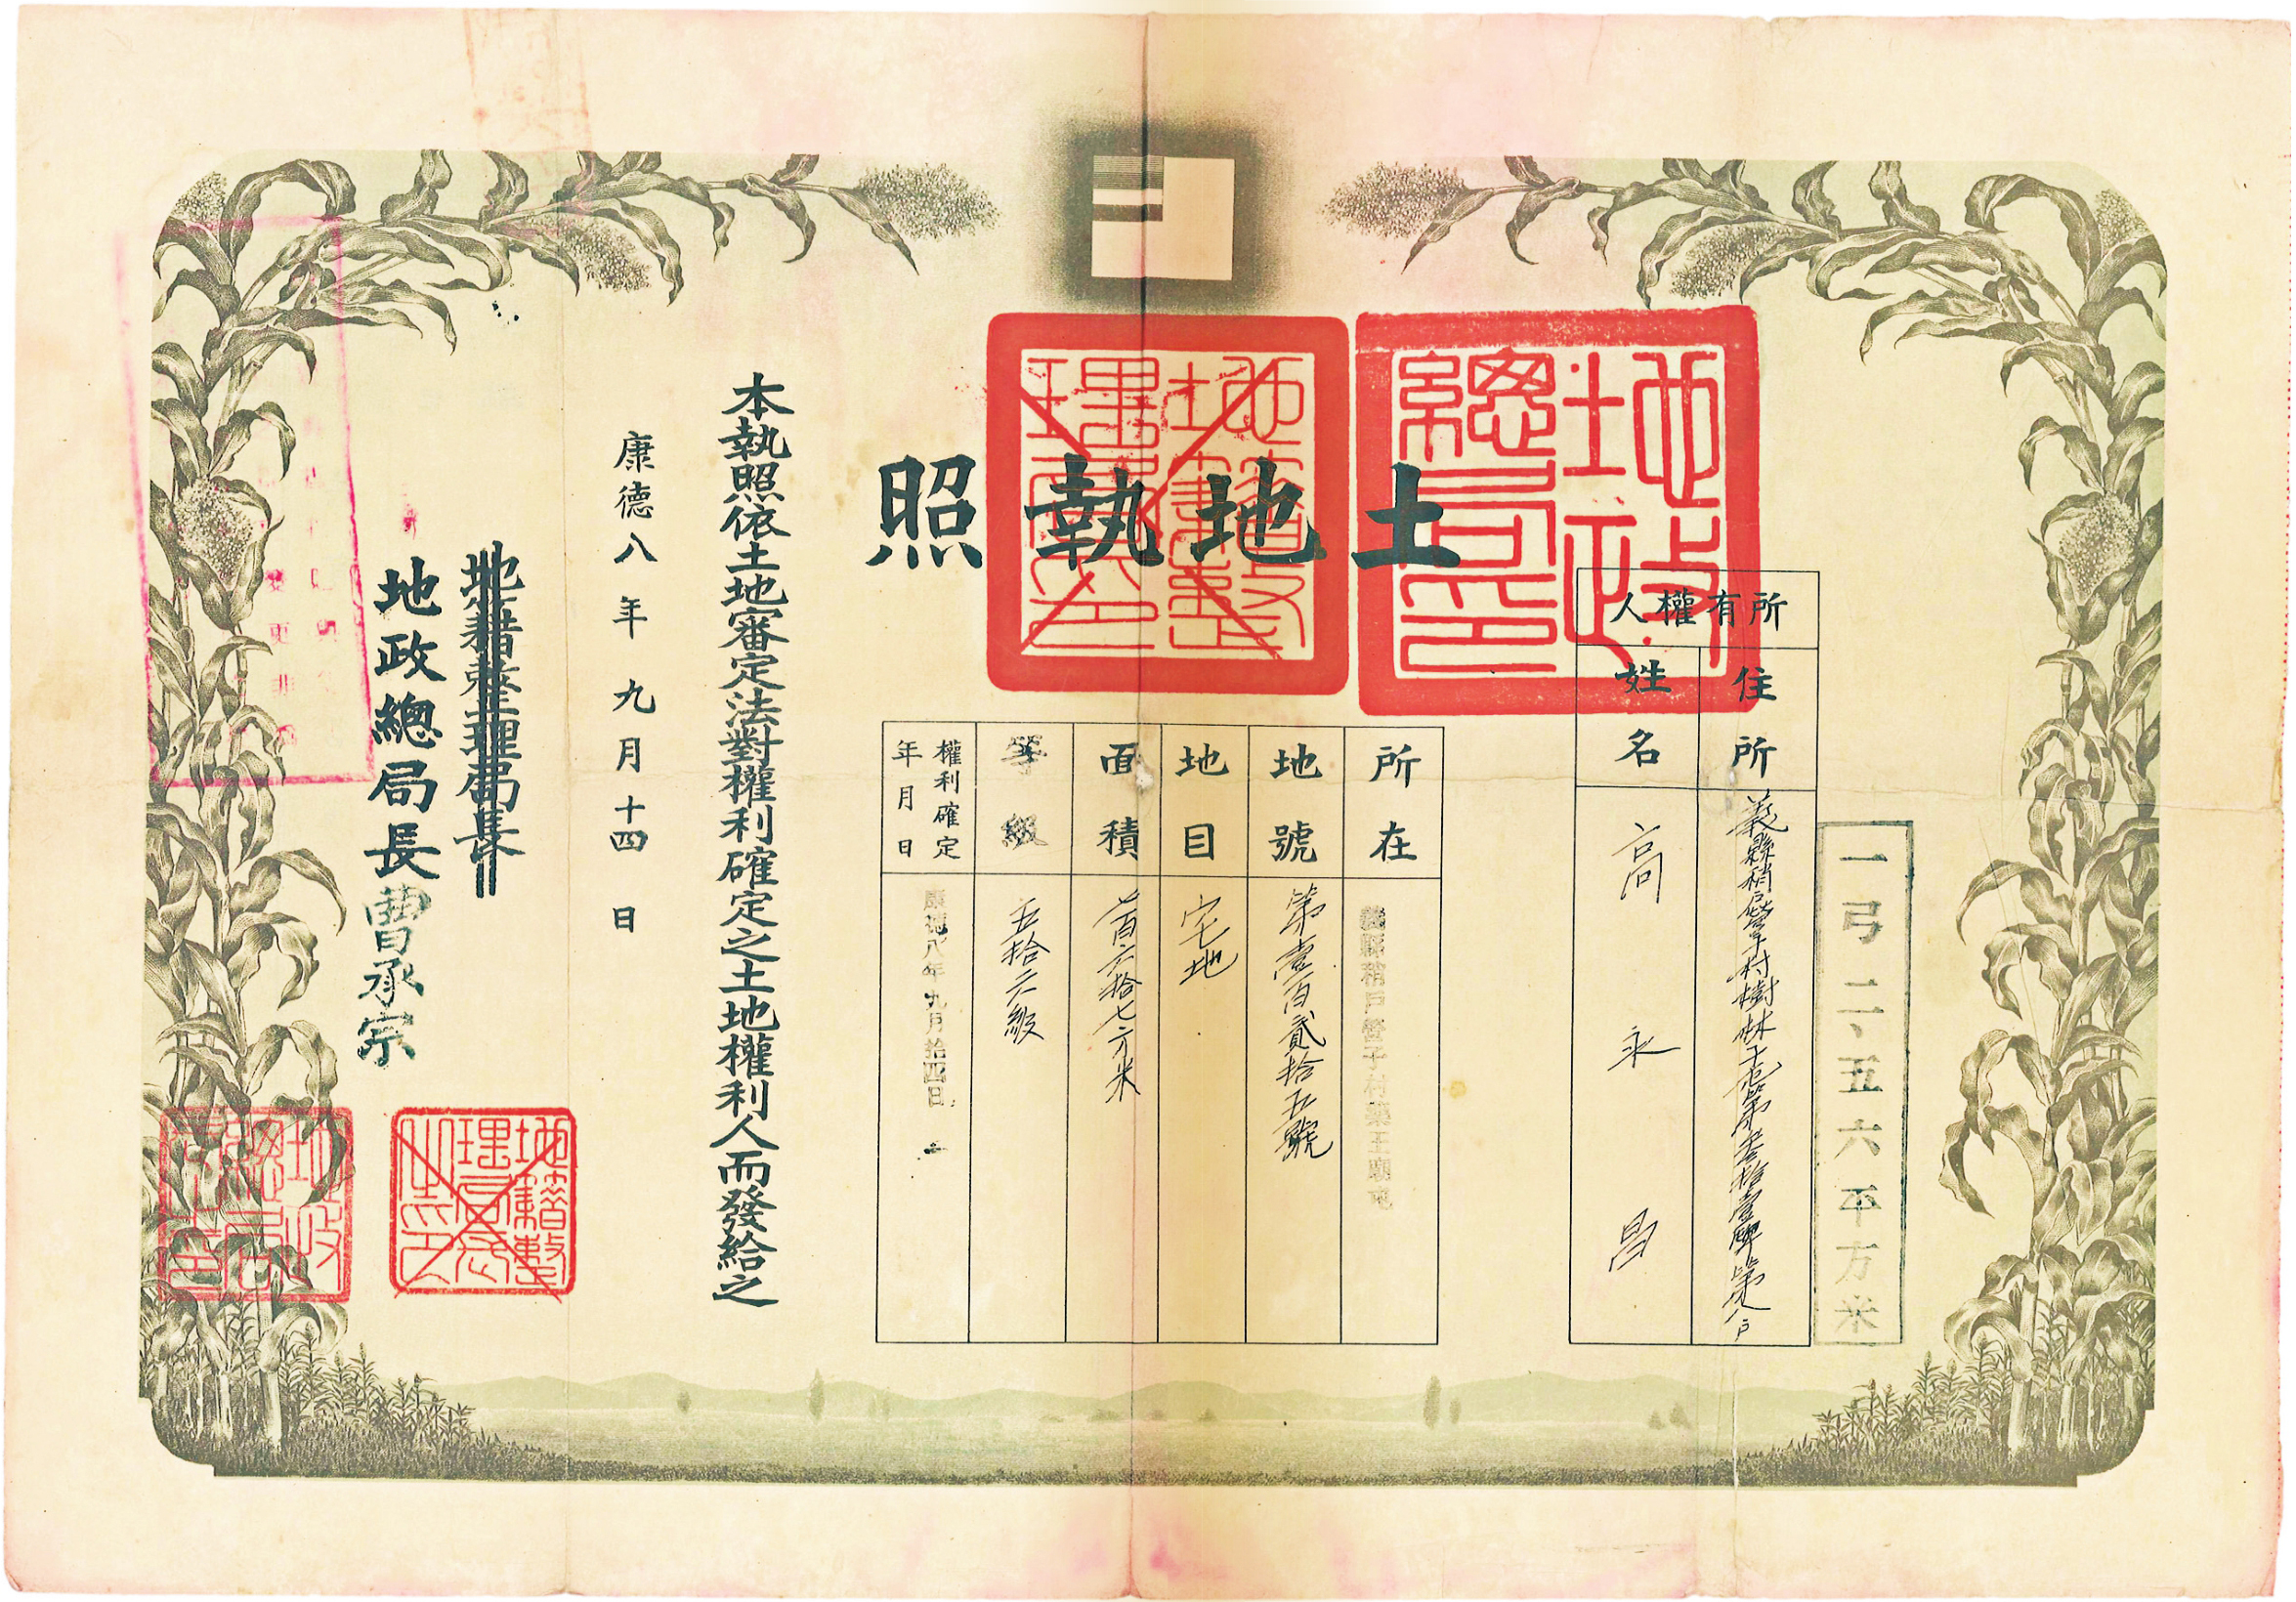 土地執照
一弓二、五六平方米
所有權人
住所
義縣稍戶營子村樹林子屯第叁拾壹牌第八戶
姓名
高永昌
所在
義縣稍戶營子村藥王廟屯
地號
第壹百貳拾五號
地目
宅地
面積
百六拾七方米
等級
五拾六級
權利確定年月日
康德八年九月拾四日
本執照依土地審定法對權利確定之土地權利人而發給之
康德八年九月十四日
地籍整理局長
地政總局長曹承宗
地政總局之印
地籍整理局之印